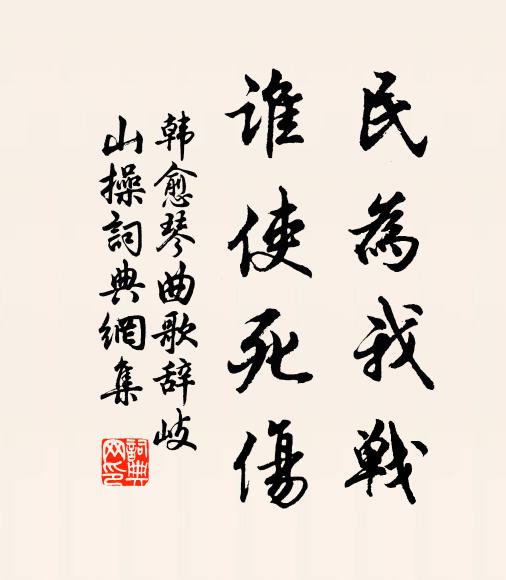 民為我戰
谁使死傷
韩愈琴曲歌辞岐
山操詞典網集
詞典
网印